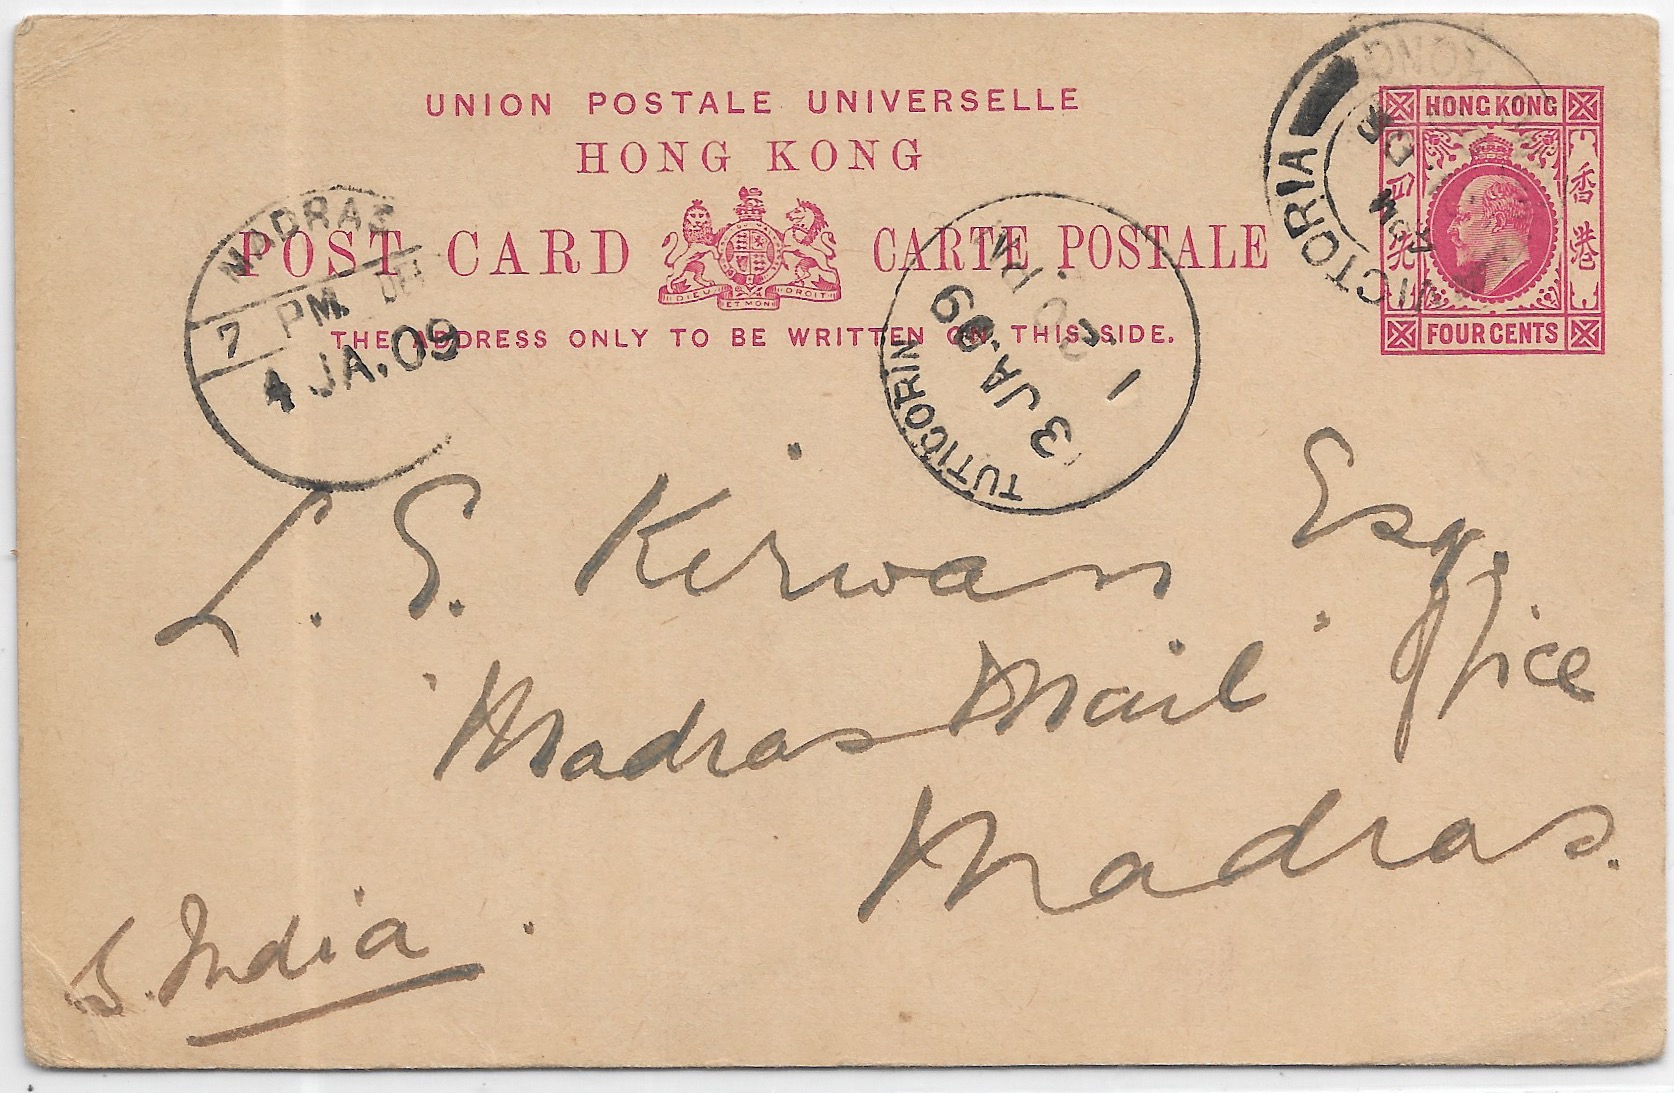 UNION POSTALE UNIVERSELLE
HONG KONG
POST CARD CARTE POSTALE
DIEU ET MON DROIT
THE ADDRESS ONLY TO BE WRITTEN ON THIS SIDE.
HONG KONG
香港
四先
FOUR CENTS
VICTORIA
HONG KONG
PM
MADRAS
7 PM. DEL
4 JA.09
TUTICORIN
3 JA.09
L. E. Kirwan Esq.
"Madras Mail" Office
Madras.
S. India